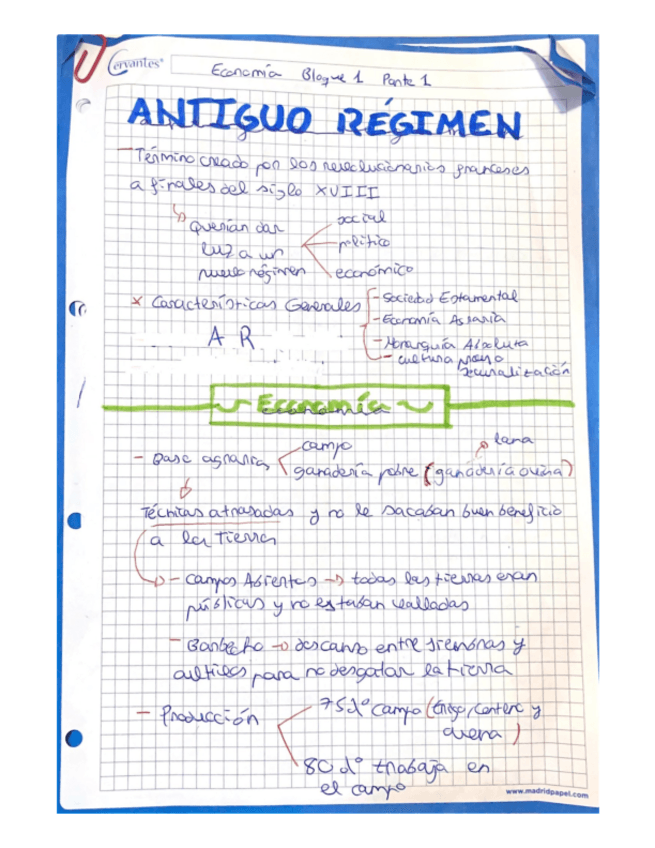 Cervantes
Economía Bloque 1 Parte 1
ANTIGUO RÉGIMEN
- Término creado por los revolucionarios franceses
a finales del siglo XVIII
Querían dar
luz a un
nuevo régimen
social
político
económico
x Características Generales
- Sociedad Estamental
- Economía Agraria
- Monarquía Absoluta
- cultura
A R
Economía
- Base agraria
campo
ganadería pobre (ganadería ovina)
lana
Técnicas atrasadas y no le sacaban buen beneficio
a la tierra
→ - Campos Abiertos → todas las tierras eran
públicas y no estaban valladas
- Barbecho → descanso entre siembras y
cultivos para no desgatar la tierra
- Producción
75 d° campo (trigo, centeno y
avena)
80 d° trabaja en
el campo
www.madridpapel.com